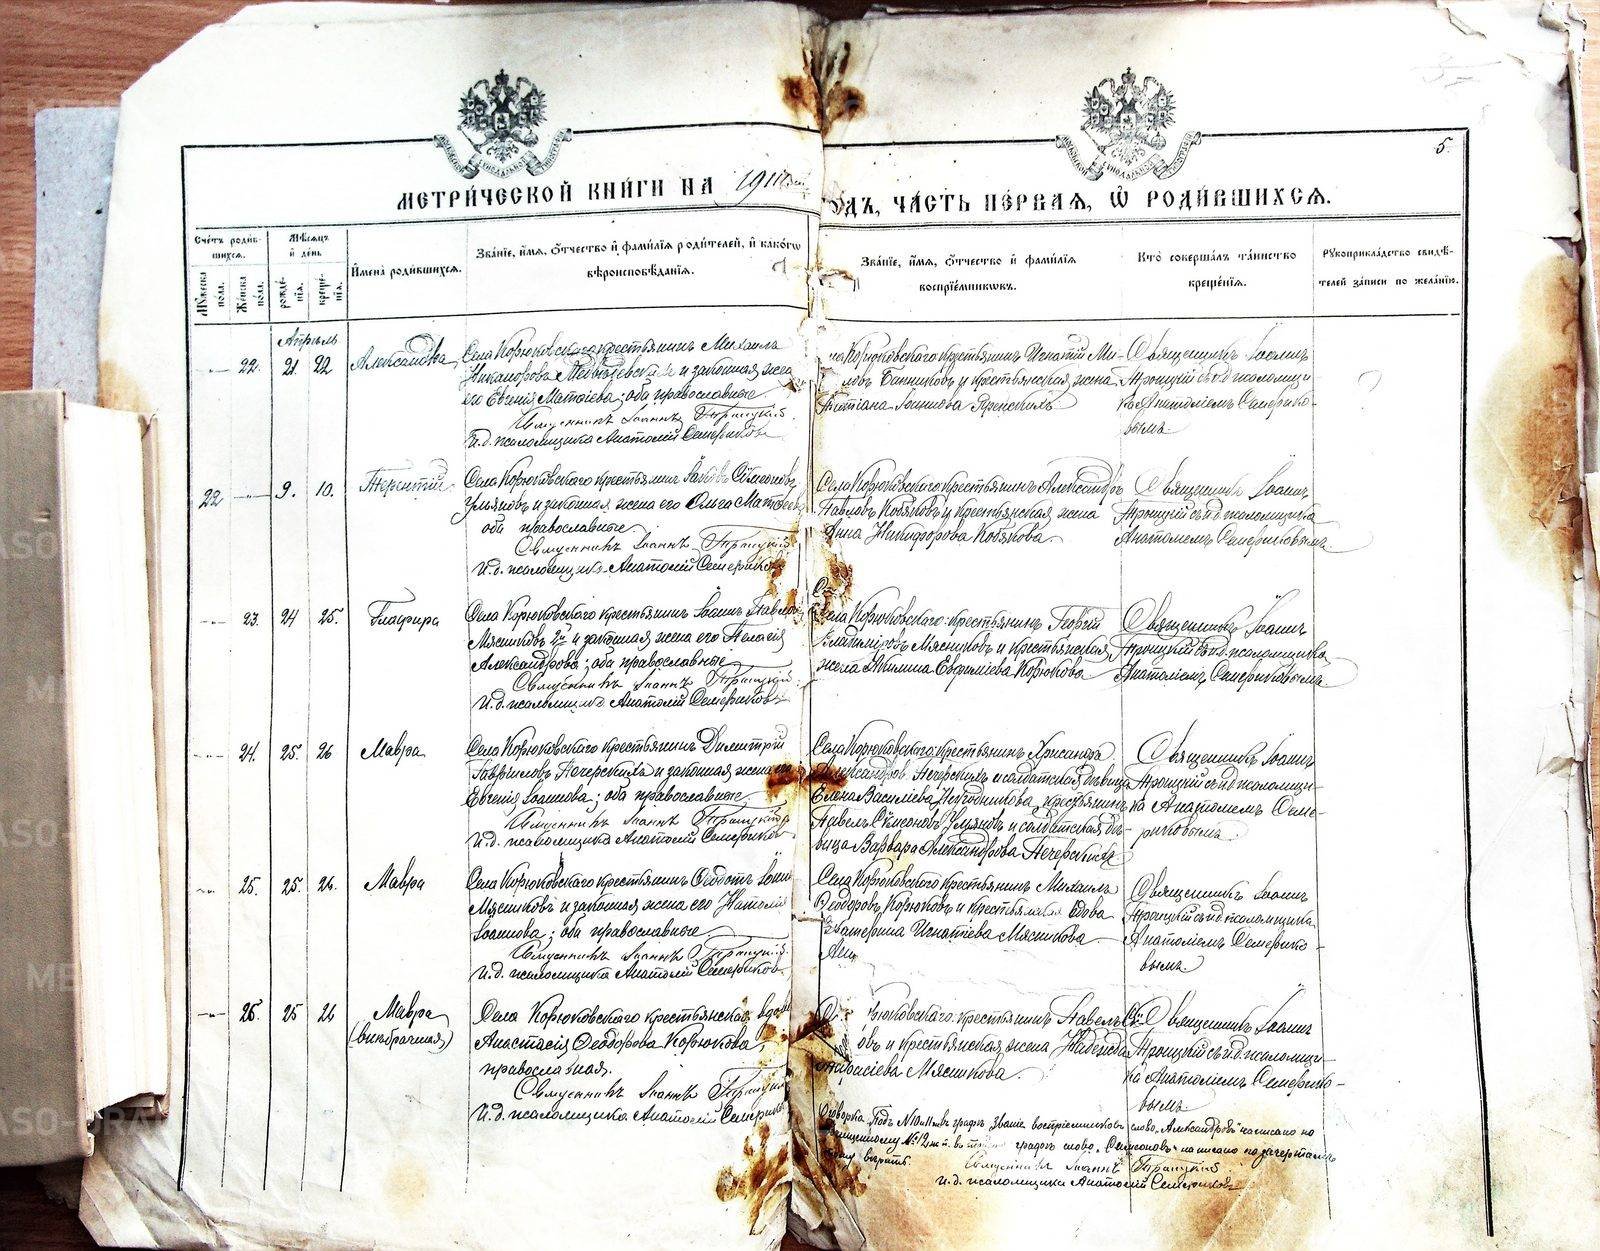 5.
МЕТРИ́ЧЕСКОЙ КНИ́ГИ НА 1911
ОДЪ, ЧА́СТЬ ПЕ́РВАЯ, Ѿ РОДИ́ВШИХСЯ.
Сче́тъ роди́в-
шихся.
Му́жеска по́ла.
Же́нска по́ла.
Мѣ́сяцъ
и́ де́нь
рожде́-
нія.
креще́-
нія.
И҆мена̀ роди́вшихся.
Зва́ніе, и҆́мя, ѻ҆́тчество и҆ фами́лія роди́телей, и҆ како́гѡ
вѣроисповѣ́данія.
Зва́ніе, и҆́мя, ѻ҆́тчество и҆ фами́лія
воспріе́мникѡвъ.
Кто̀ соверша́лъ та́инство
креще́нія.
Рукоприкла́дство свидѣ́-
телей за́писи по жела́нію.
Апрѣль
22. 21. 22 Александра
Села Корюковскаго крестьянинъ Михаилъ
Никаноровъ и законная жена
его Евгенія Матѳіева; оба православные.
Священникъ Іоаннъ Троицкій
И. д. псаломщика Анатолій Семериковъ
Корюковскаго крестьянинъ Игнатій Ми-
ловъ Банниковъ и крестьянская жена
Татіана Іоаннова
Священникъ Іоаннъ
Троицкій съ и. д. псаломщи-
ка Анатоліемъ Семерико-
вымъ
22 9. 10. Терентій
Села Корюковскаго крестьянинъ Іаковъ Сѵмеоновъ
Ульяновъ и законная жена его Ольга Матѳіева
оба православные
Священникъ Іоаннъ Троицкій
И. д. псаломщика Анатолій Семериковъ
Села Корюковскаго крестьянинъ Александръ
Павловъ Кобяковъ и крестьянская жена
Анна Никифорова Кобякова.
Священникъ Іоаннъ
Троицкій съ и. д. псаломщика
Анатоліемъ Семериковымъ.
23. 24 25. Глафира
Села Корюковскаго крестьянинъ Іоаннъ Павловъ
Мясниковъ 2й и законная жена его Пелагія
Александрова; оба православные
Священникъ Іоаннъ Троицкій
И. д. псаломщика Анатолій Семериковъ
Села Корюковскаго крестьянинъ Георгій
Владиміровъ Мясниковъ и крестьянская
жена Акилина Евфиміева Корюкова.
Священникъ Іоаннъ
Троицкій съ и. д. псаломщика
Анатоліемъ Семериковымъ.
24. 25. 26 Мавра
Села Корюковскаго крестьянинъ Димитрій
Гавріиловъ Печерскихъ и законная жена его
Евгенія Іоаннова; оба православные
Священникъ Іоаннъ Троицкій
И. д. псаломщика Анатолій Семериковъ
Села Корюковскаго крестьянинъ Хрисанѳъ
Александровъ Печерскихъ и солдатская дѣвица
Елена Василіева крестьянинъ
Павелъ Сѵмеоновъ Ульяновъ и солдатская дѣ-
вица Варвара Александрова Печерскихъ
Священникъ Іоаннъ
Троицкій съ и. д. псаломщи-
ка Анатоліемъ Семе-
риковымъ.
25. 25. 26. Мавра
Села Корюковскаго крестьянинъ Ѳеодотъ Іоанн
Мясниковъ и законная жена его Наталія
Іоаннова; оба православные.
Священникъ Іоаннъ Троицкій.
И. д. псаломщика Анатолій Семериковъ.
Села Корюковскаго крестьянинъ Михаилъ
Ѳеодоровъ Корюковъ и крестьянская вдова
Екатерина Игнатіева Мясникова.
Священникъ Іоаннъ
Троицкій съ и. д. псаломщика
Анатоліемъ Семерико-
вымъ.
26. 25 26 Мавра
(внѣбрачная)
Села Корюковскаго крестьянская вдова
Анастасія Ѳеодорова Корюкова,
православная.
Священникъ Іоаннъ Троицкій
И. д. псаломщика Анатолій Семериковъ
Корюковскаго крестьянинъ Павелъ Сѵ-
овъ и крестьянская жена Надежда
Мясникова.
Священникъ Іоаннъ
Троицкій съ и. д. псаломщи-
ка Анатоліемъ Семерико-
вымъ
Оговорка. Подъ № 10 м. п. въ графѣ Званіе воспріемниковъ слово „Александръ" написано по
№ 12 графѣ слово „Сѵмеоновъ" написано по
вѣрить.
Священникъ Іоаннъ Троицкій
И. д. псаломщика Анатолій Семериковъ